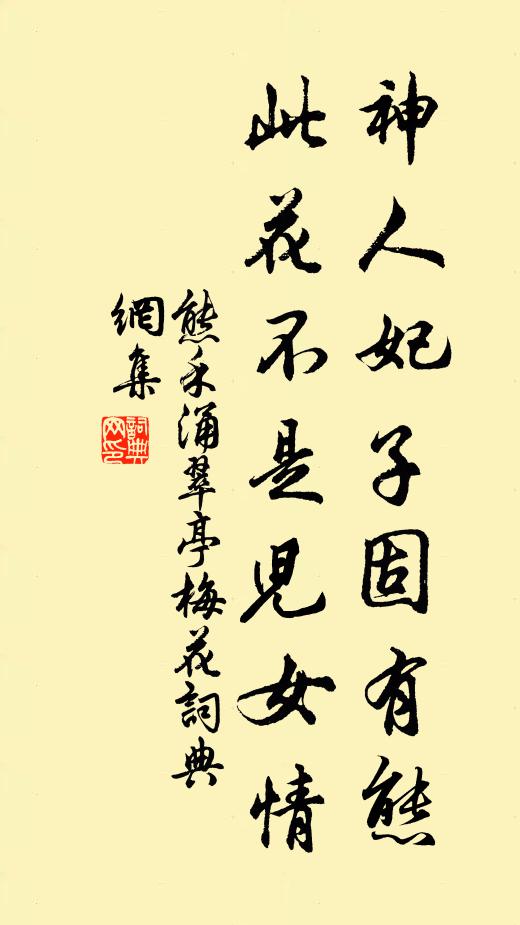 神人妃子固有態
此花不是兒女情
熊禾涌翠亭梅花詞典
網集
詞典
网印